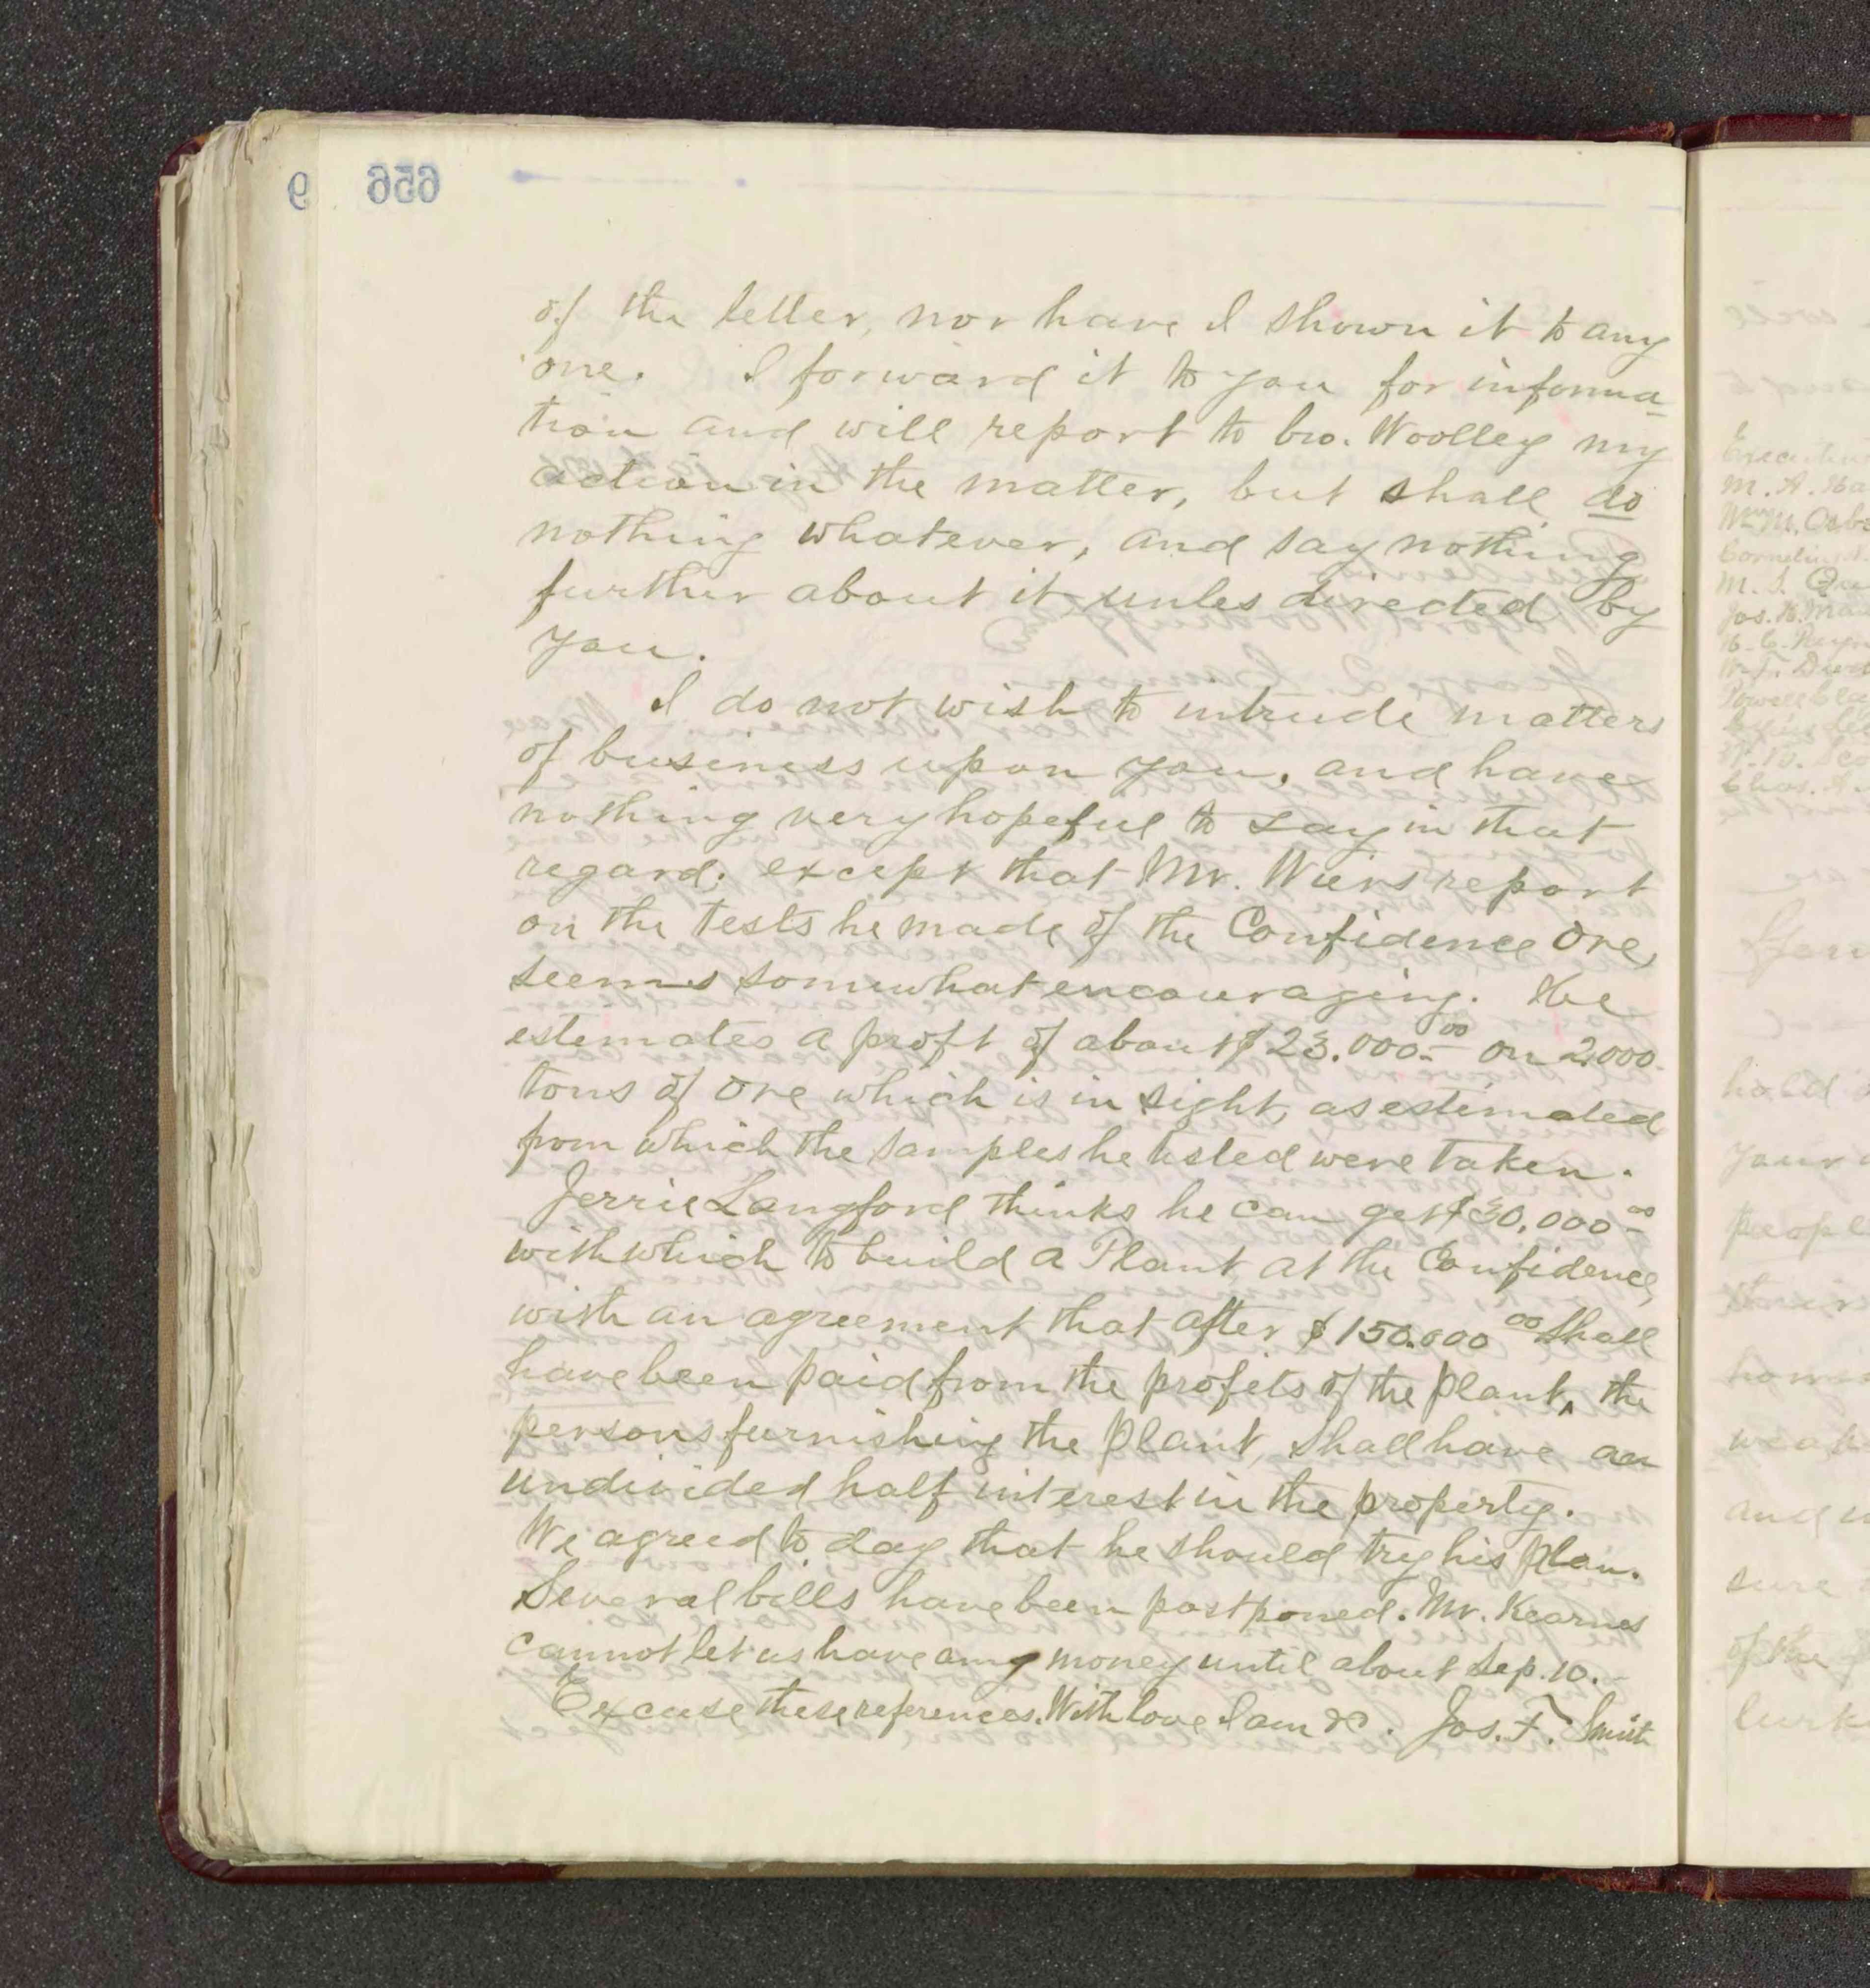 656
of the letter, nor have I shown it to any
one. I forward it to you for informa-
tion and will report to bro. Woolley my
action in the matter, but shall do
nothing whatever, and say nothing
further about it unles directed by
you.
I do not wish to intrude matters
of business upon you, and have
nothing very hopeful to say in that
regard; except that Mr. Wiers report
on the tests he made of the Confidence Ore,
seems somewhat encouraging. He
estimates a proft of about $23.000.00 on 2,000.
tons of Ore which is in sight, as estimated
from which the samples he tested were taken.
Jerrie Langford thinks he can get $30,000.00
with which to build a Plant at the Confidence,
with an agreement that after $150.000 00 shall
have been paid from the profits of the plant, the
persons furnishing the plant, shall have an
undivided half interest in the property.
We agreed to day that he should try his plan.
Several bills have been postponed. Mr. Kearnes
cannot let us have any money until about Sep. 10.
Excuse these references. With love I am &c. Jos. F. Smith
Executive
M. A. Ha
Wm M. Osbo
Cornelius N.
M. S. Qua
Jos. H. Man
Powell Cla
Chas. A.
hold
your
peopl
their
homes
weak
and
sure
of the
lurk